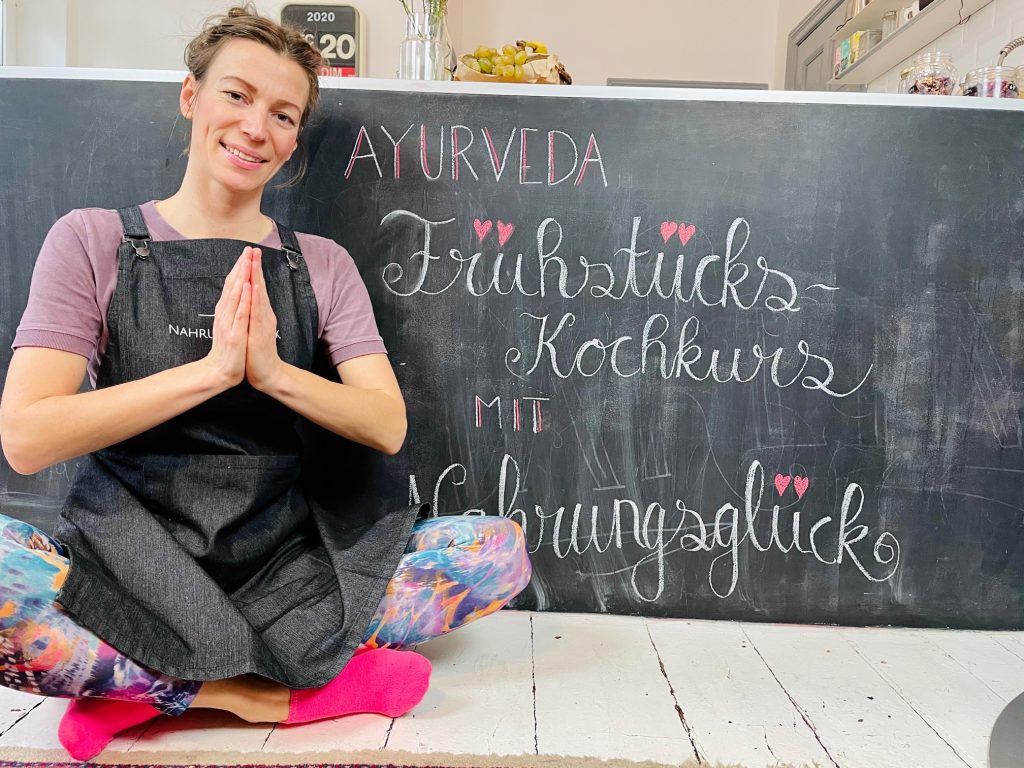 2020
20
AYURVEDA
Frühstücks-
Kochkurs
MIT
Nahrungsglück